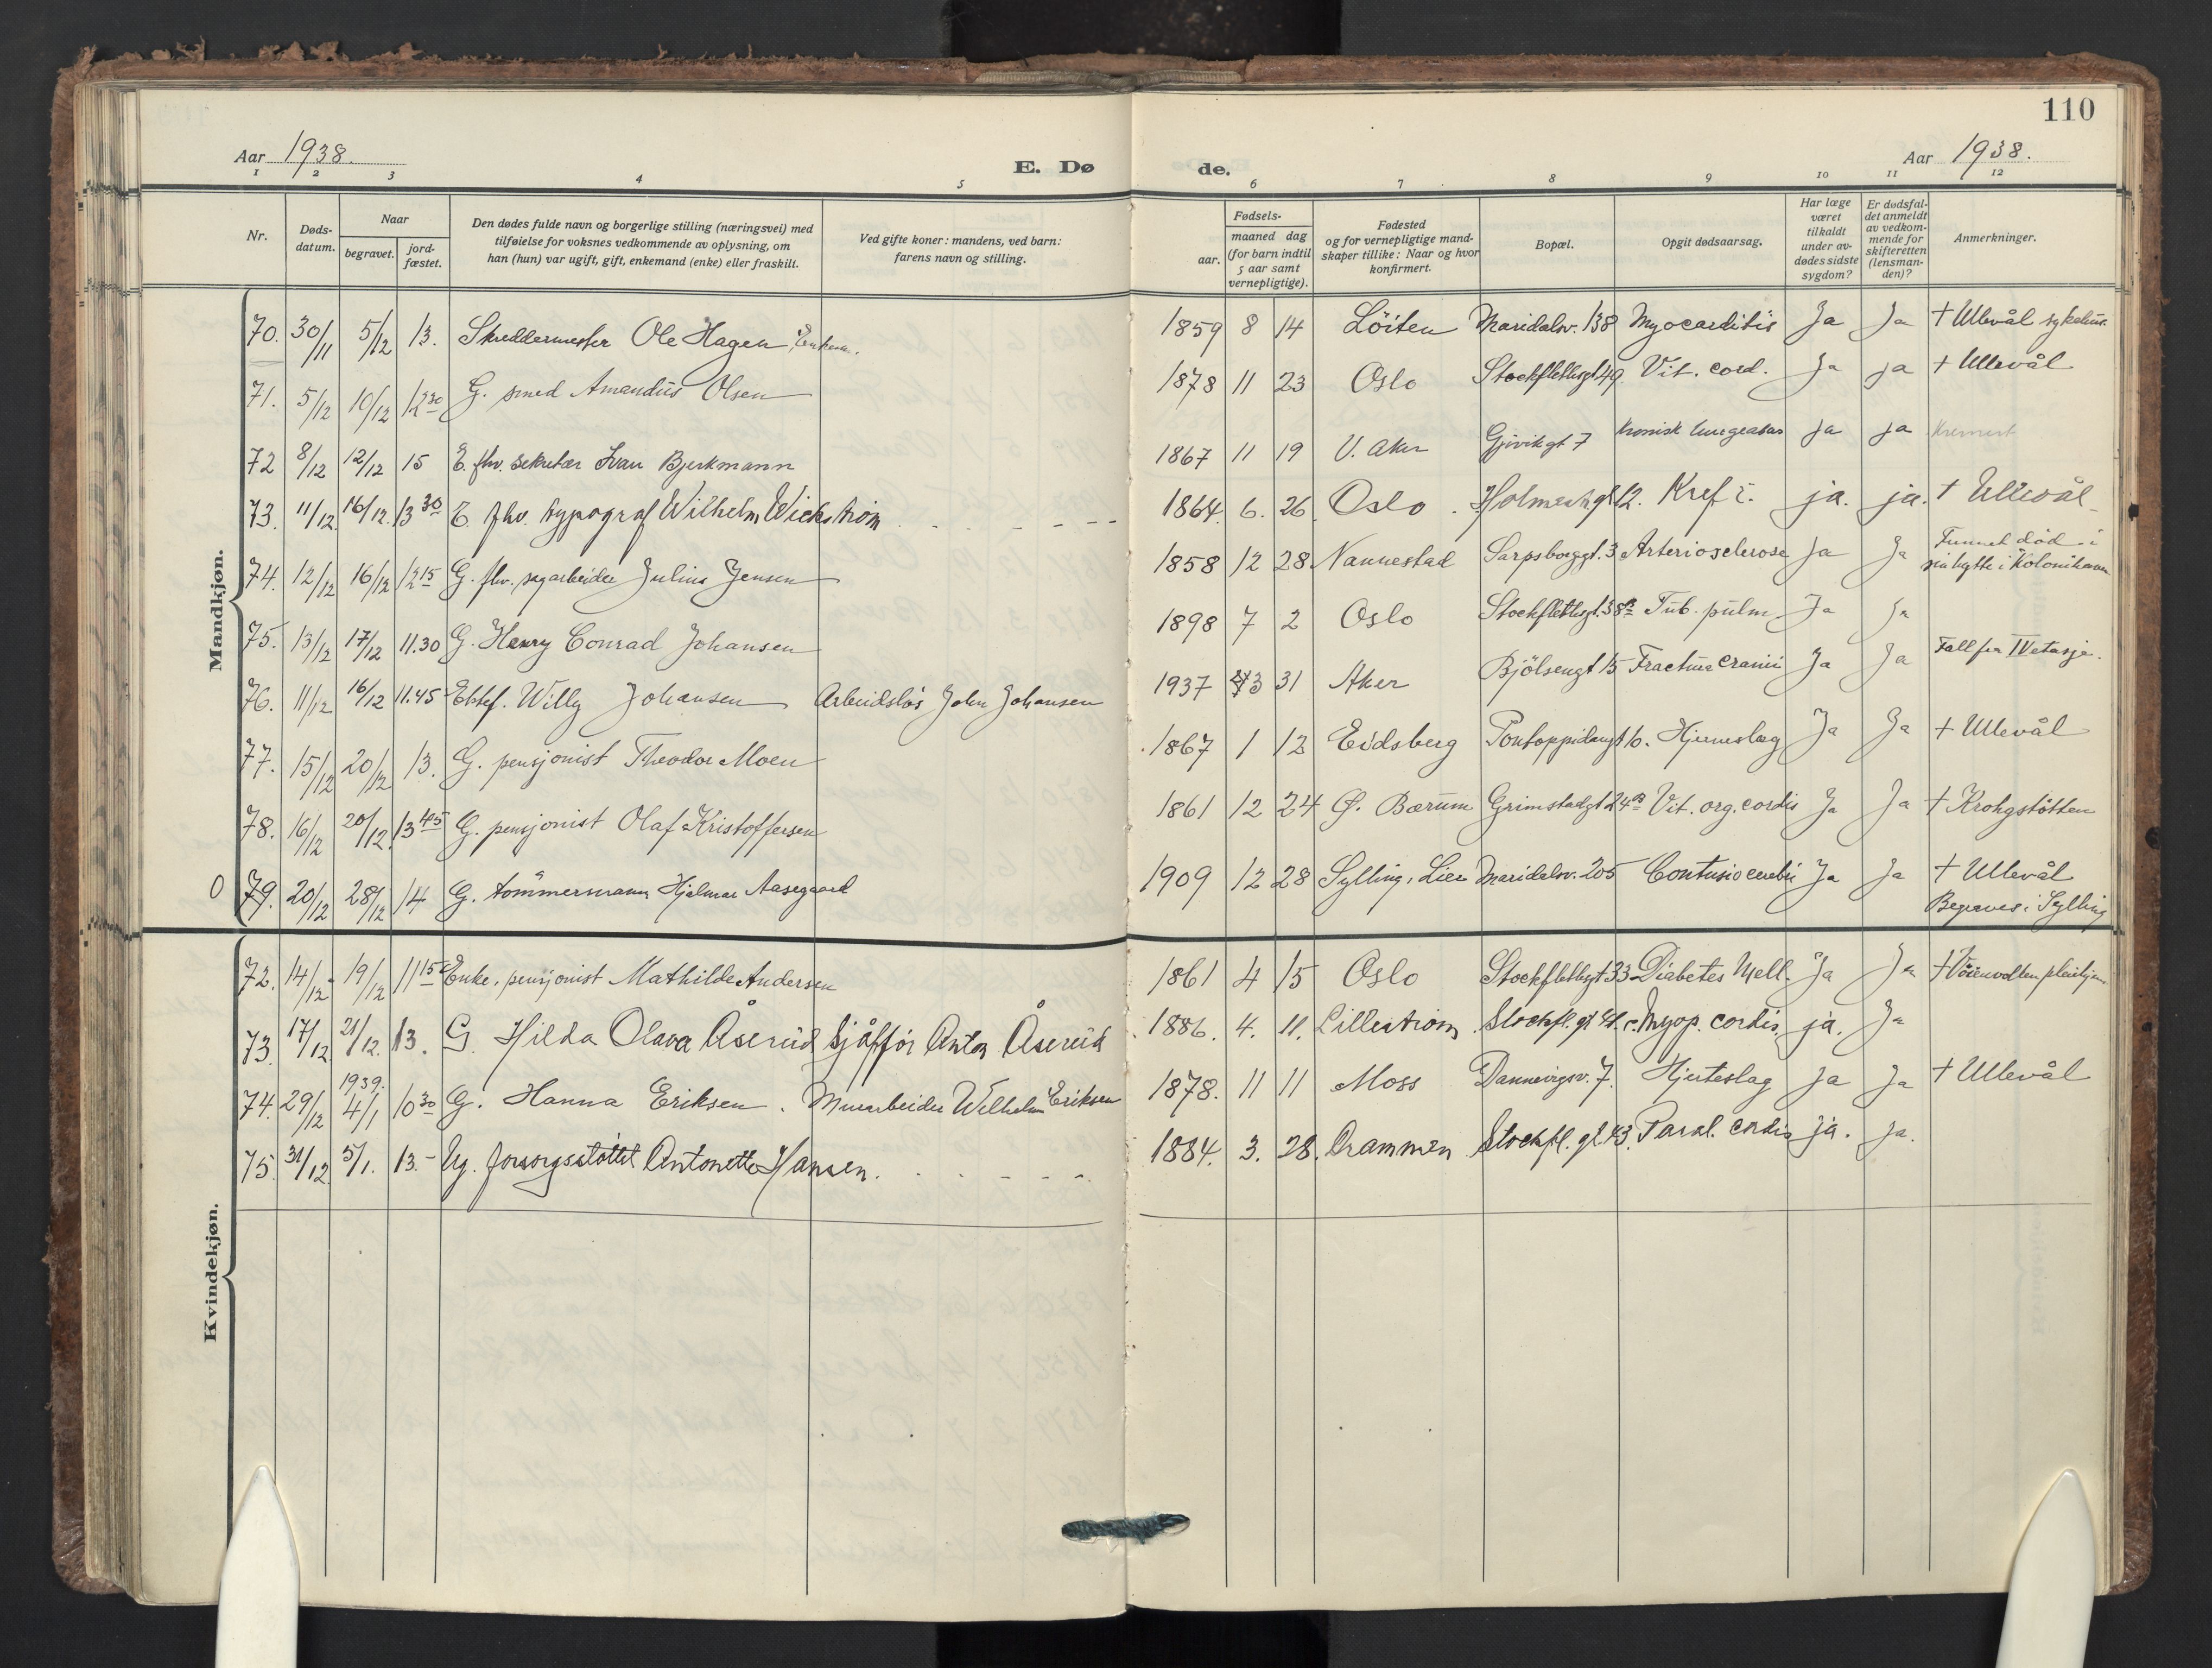 110
Aar 1938. E. Dø de. Aar 1938.
1 2 3 4 5 6 7 8 9 10 11 12
Nr. Døds-datum. Naar begravet. jord-fæstet. Den dødes fulde navn og borgerlige stilling (næringsvei) med tilføielse for voksnes vedkommende av oplysning, om han (hun) var ugift, gift, enkemand (enke) eller fraskilt. Ved gifte koner: mandens, ved barn: farens navn og stilling. Fødsels- aar. maaned dag (for barn indtil 5 aar samt vernepligtige). Fødested og for vernepligtige mand-skaper tillike: Naar og hvor konfirmert. Bopæl. Opgit dødsaarsag. Har læge været tilkaldt under av-dødes sidste sygdom? Er dødsfal-det anmeldt av vedkom-mende for skifteretten (lensman-den)? Anmerkninger.
Mandkjøn.
70. 30/11 5/12 13. Skreddermester Ole Hagen, Enkem. 1859 8 14 Löiten Maridalsv. 138 Myocarditis Ja Ja † Ullevål sykehus.
71. 5/12 10/12 12 30 G. smed Amandus Olsen 1878 11 23 Oslo Stockflethsgt 49 Vit. cord. Ja ja † Ullevål
72 8/12 12/12 15 E. fhv. sekretær Ivar Bjerkmann 1867 11 19 V. Aker Gjøvikgt 7 Kronisk ja ja Kremert
73. 11/12 16/12. 13 30 E. fhv. typograf Wilhelm Wickstrøm 1864. 6. 26. Oslo. 12. Kref i. ja. ja. † Ullevål
74. 12/12 16/12 12 15 G. fhv. sagarbeider Julius Jensen 1858 12 28 Nannestad Sarpsborggt. 3 Arteriosclerose Ja Ja Funnet død i sin hytte i Kolonihaven
75. 13/12 17/12 11.30 G. Harry Conrad Johansen 1898 7 2 Oslo Stockflethsgt. 38 B Tub. pulm Ja Ja
76. 11/12 16/12 11.45 Ektef. Willy Johansen Arbeidsløs John Johansen 1937 3 31 Aker Bjölsengt 15 Fractura cranii Ja Ja Fall fra IV etasje.
77. 15/12 20/12 13. G. pensjonist Theodor Moen 1867 1 12 Eidsberg Pontoppidansgt 10. Hjerneslag Ja Ja † Ullevål
78. 16/12 20/12. 13 45 G. pensjonist Olaf Kristoffersen 1861 12 24 Ø. Bærum Grimstadgt 24 B Vit. org. cordis Ja Ja † Krohgstötten
0 79. 20/12 28/12 14 G. tømmermann Hjalmar Aasegaard 1909 12 28 Sylling, Lier Maridalsv. 205 Contusio cerebri Ja Ja † Ullevål Begraves i Sylling
Kvindekjøn.
72. 14/12 19/12 11 15 Enke. pensjonist Mathilde Andersen 1861 4 15 Oslo Stockflethsgt 33 Diabetes Mell. Ja Ja † Voienvolden pleiehjem
73. 17/12 21/12. 13. G. Hilda Olava Åserud Sjåffør Anton Åserud 1886. 4. 11. Lillestrøm. Stockfl. gt Myop. cordis ja. Ja
74. 29/12 1939. 4/1 10 30 G. Hanna Eriksen. Murarbeider Wilhelm Eriksen 1878. 11 11 Moss Dannevigsv. 7. Hjerteslag Ja Ja † Ullevål
75. 31/12 5/1. 13.- Ug. forsorgsstøttet Antonette Hansen. 1884. 3. 28. Drammen Stockfl. gt. 43. Paral. cordis ja. ja.